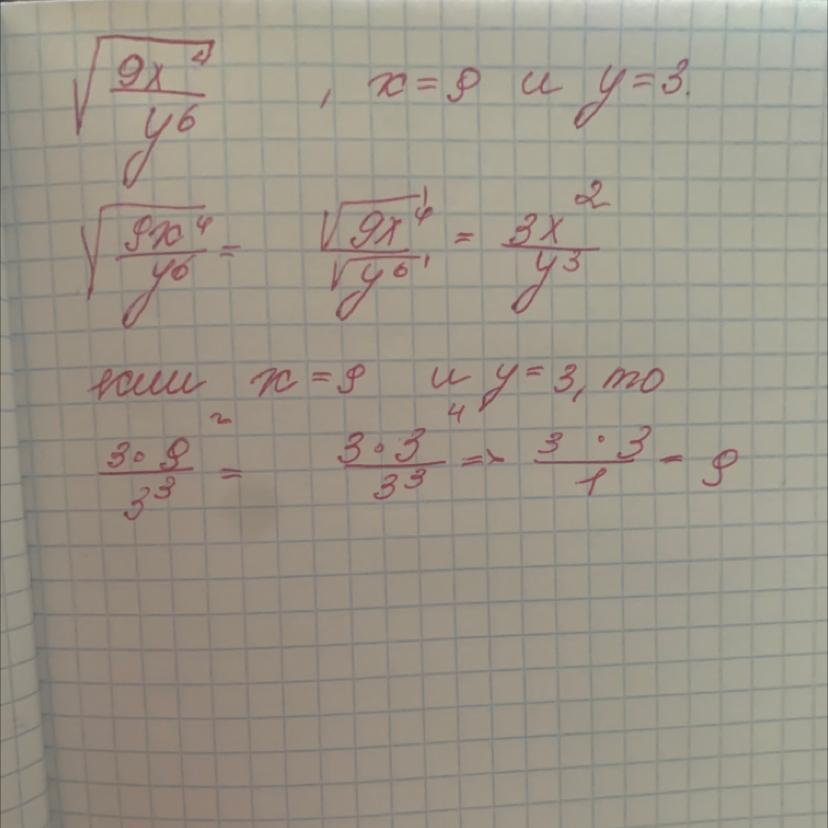 √(9x⁴/y⁶) , x=9 и y=3.
√(9x⁴/y⁶) = √(9x⁴)/√(y⁶) = 3x²/y³
если x=9 и y=3, то
3·9²/3³ = 3·3⁴/3³ => 3·3/1 = 9